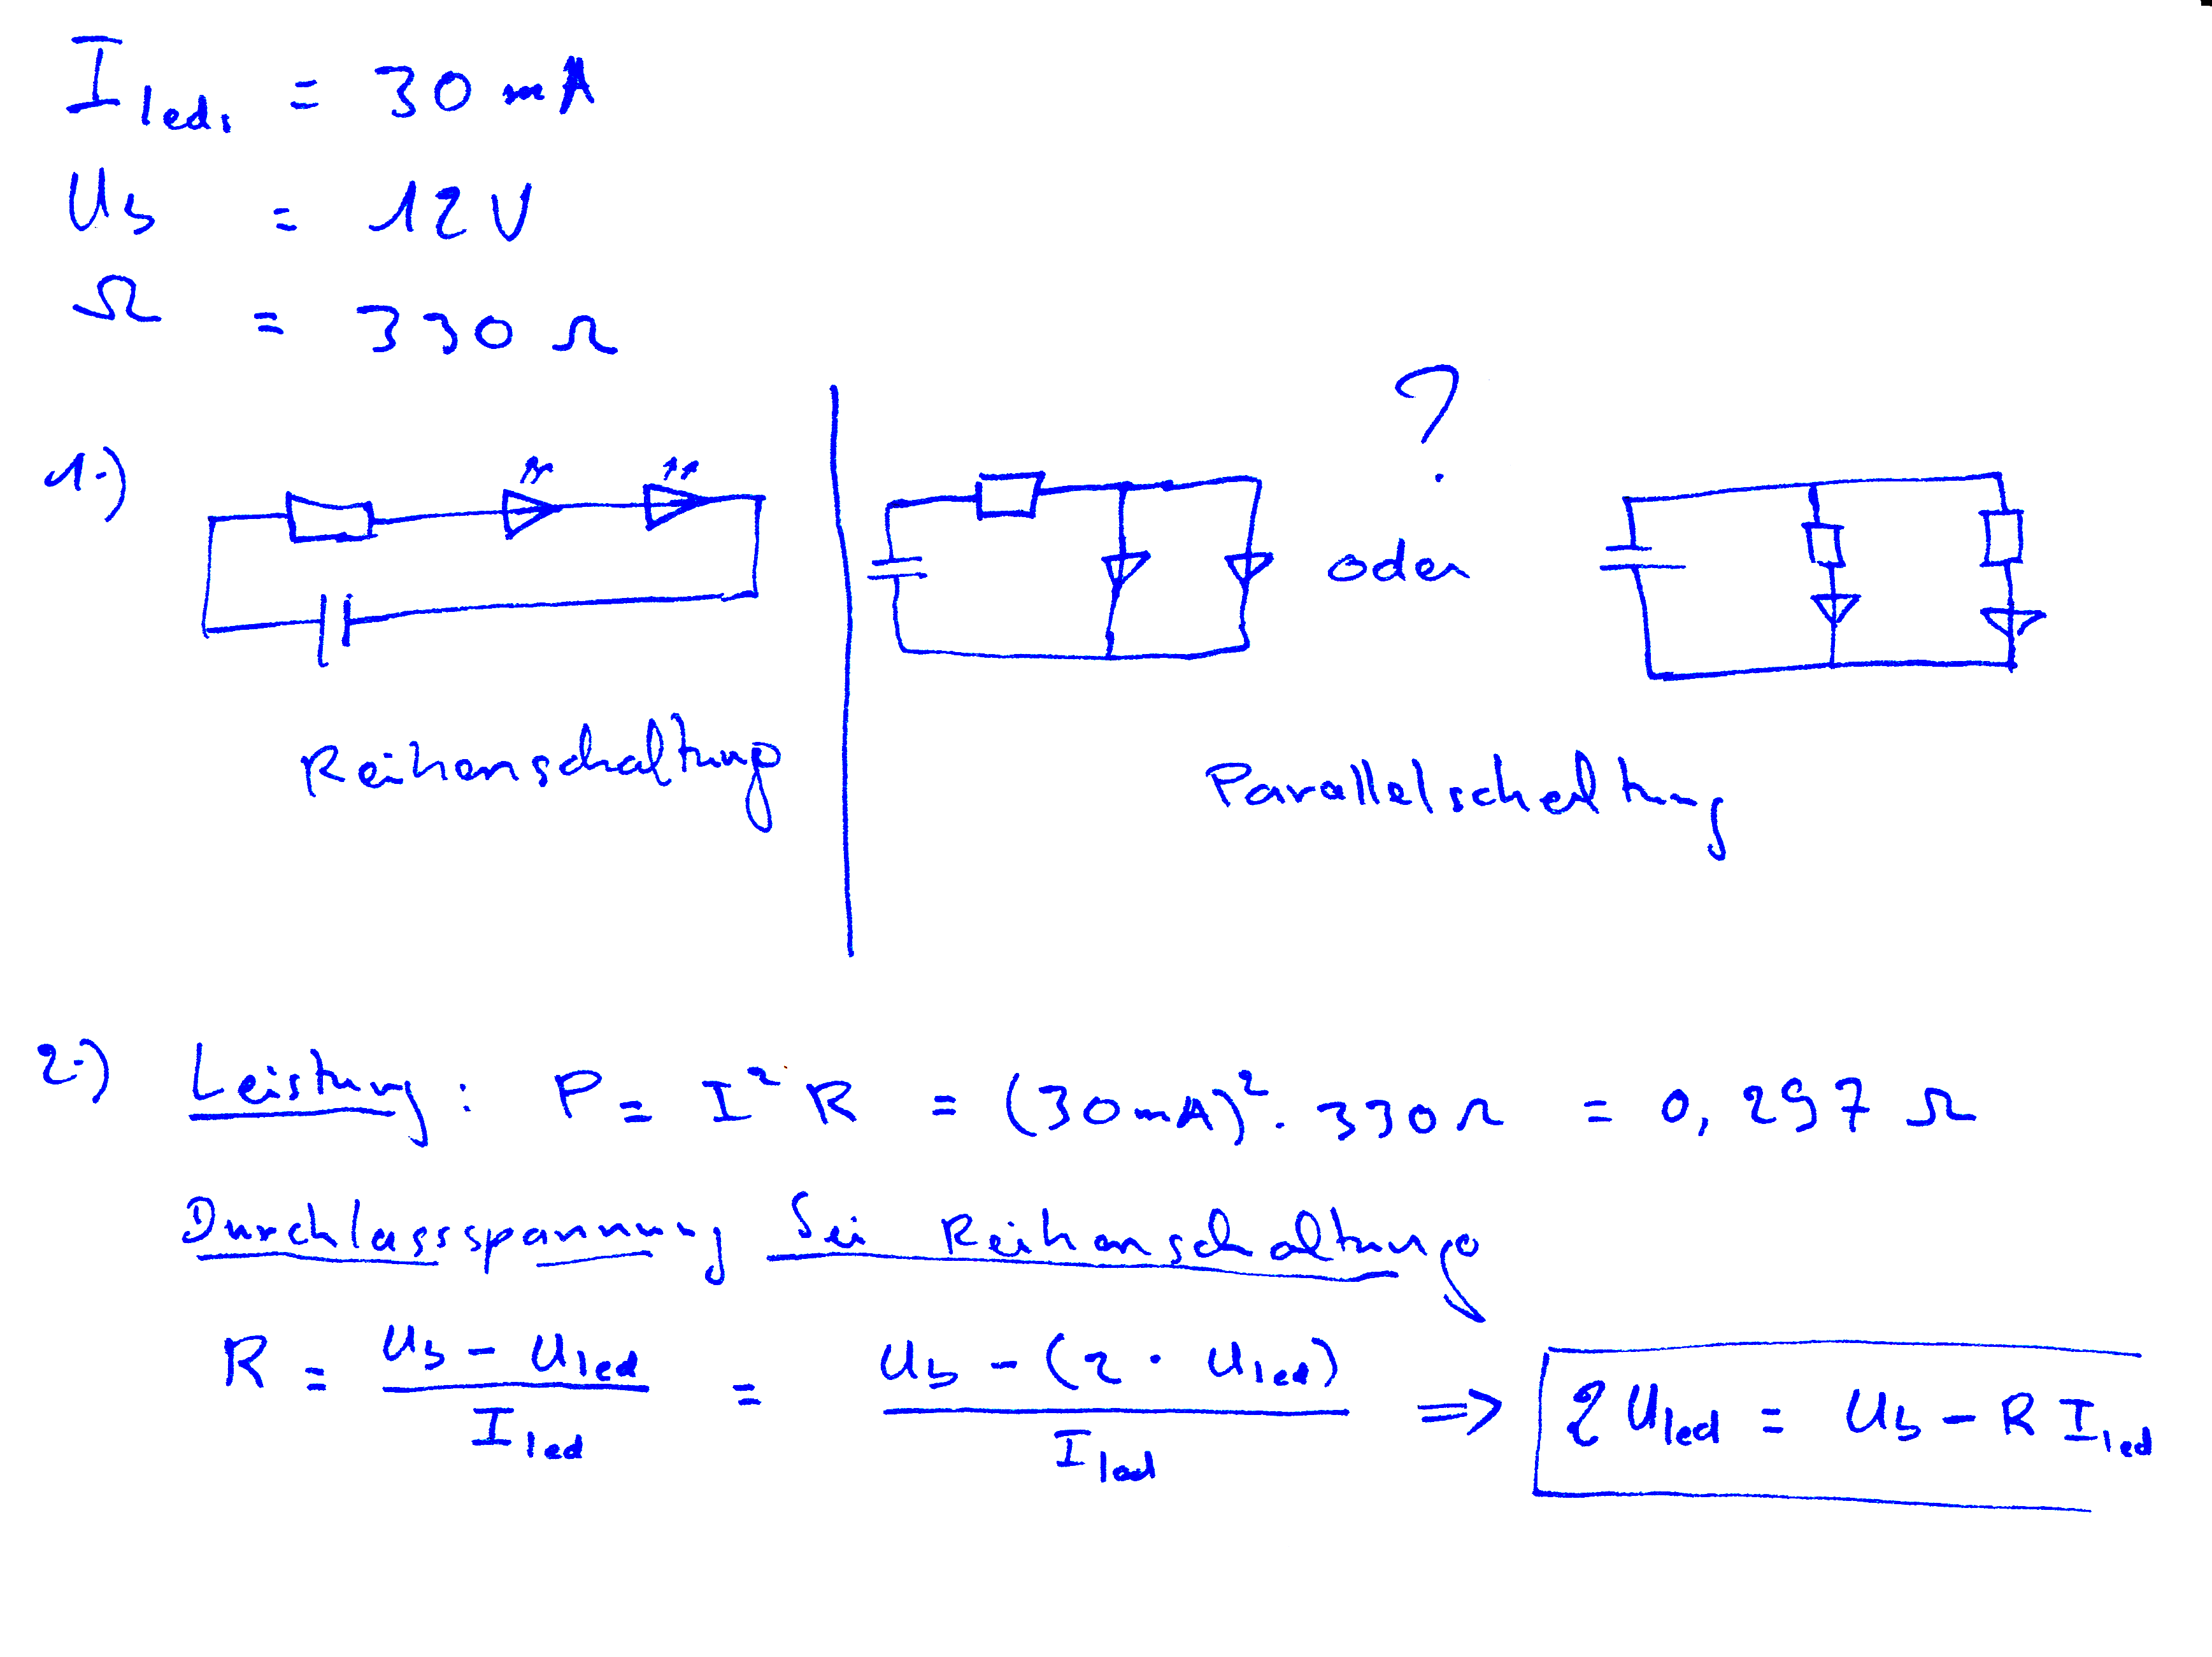 I led₁ = 30 mA
Ub = 12 V
Ω = 330 Ω
?
1.)
oder
Reihenschaltung
Parallelschaltung
2.) Leistung: P = I² R = (30mA)² · 330Ω = 0,297 Ω
Durchlassspannung bei Reihenschaltung
R = (Ub - Uled) / Iled = (Ub - (2 · Uled)) / Iled => 2 Uled = Ub - R Iled